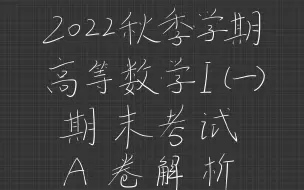 2022秋季学期
高等数学I(一)
期末考试
A卷解析